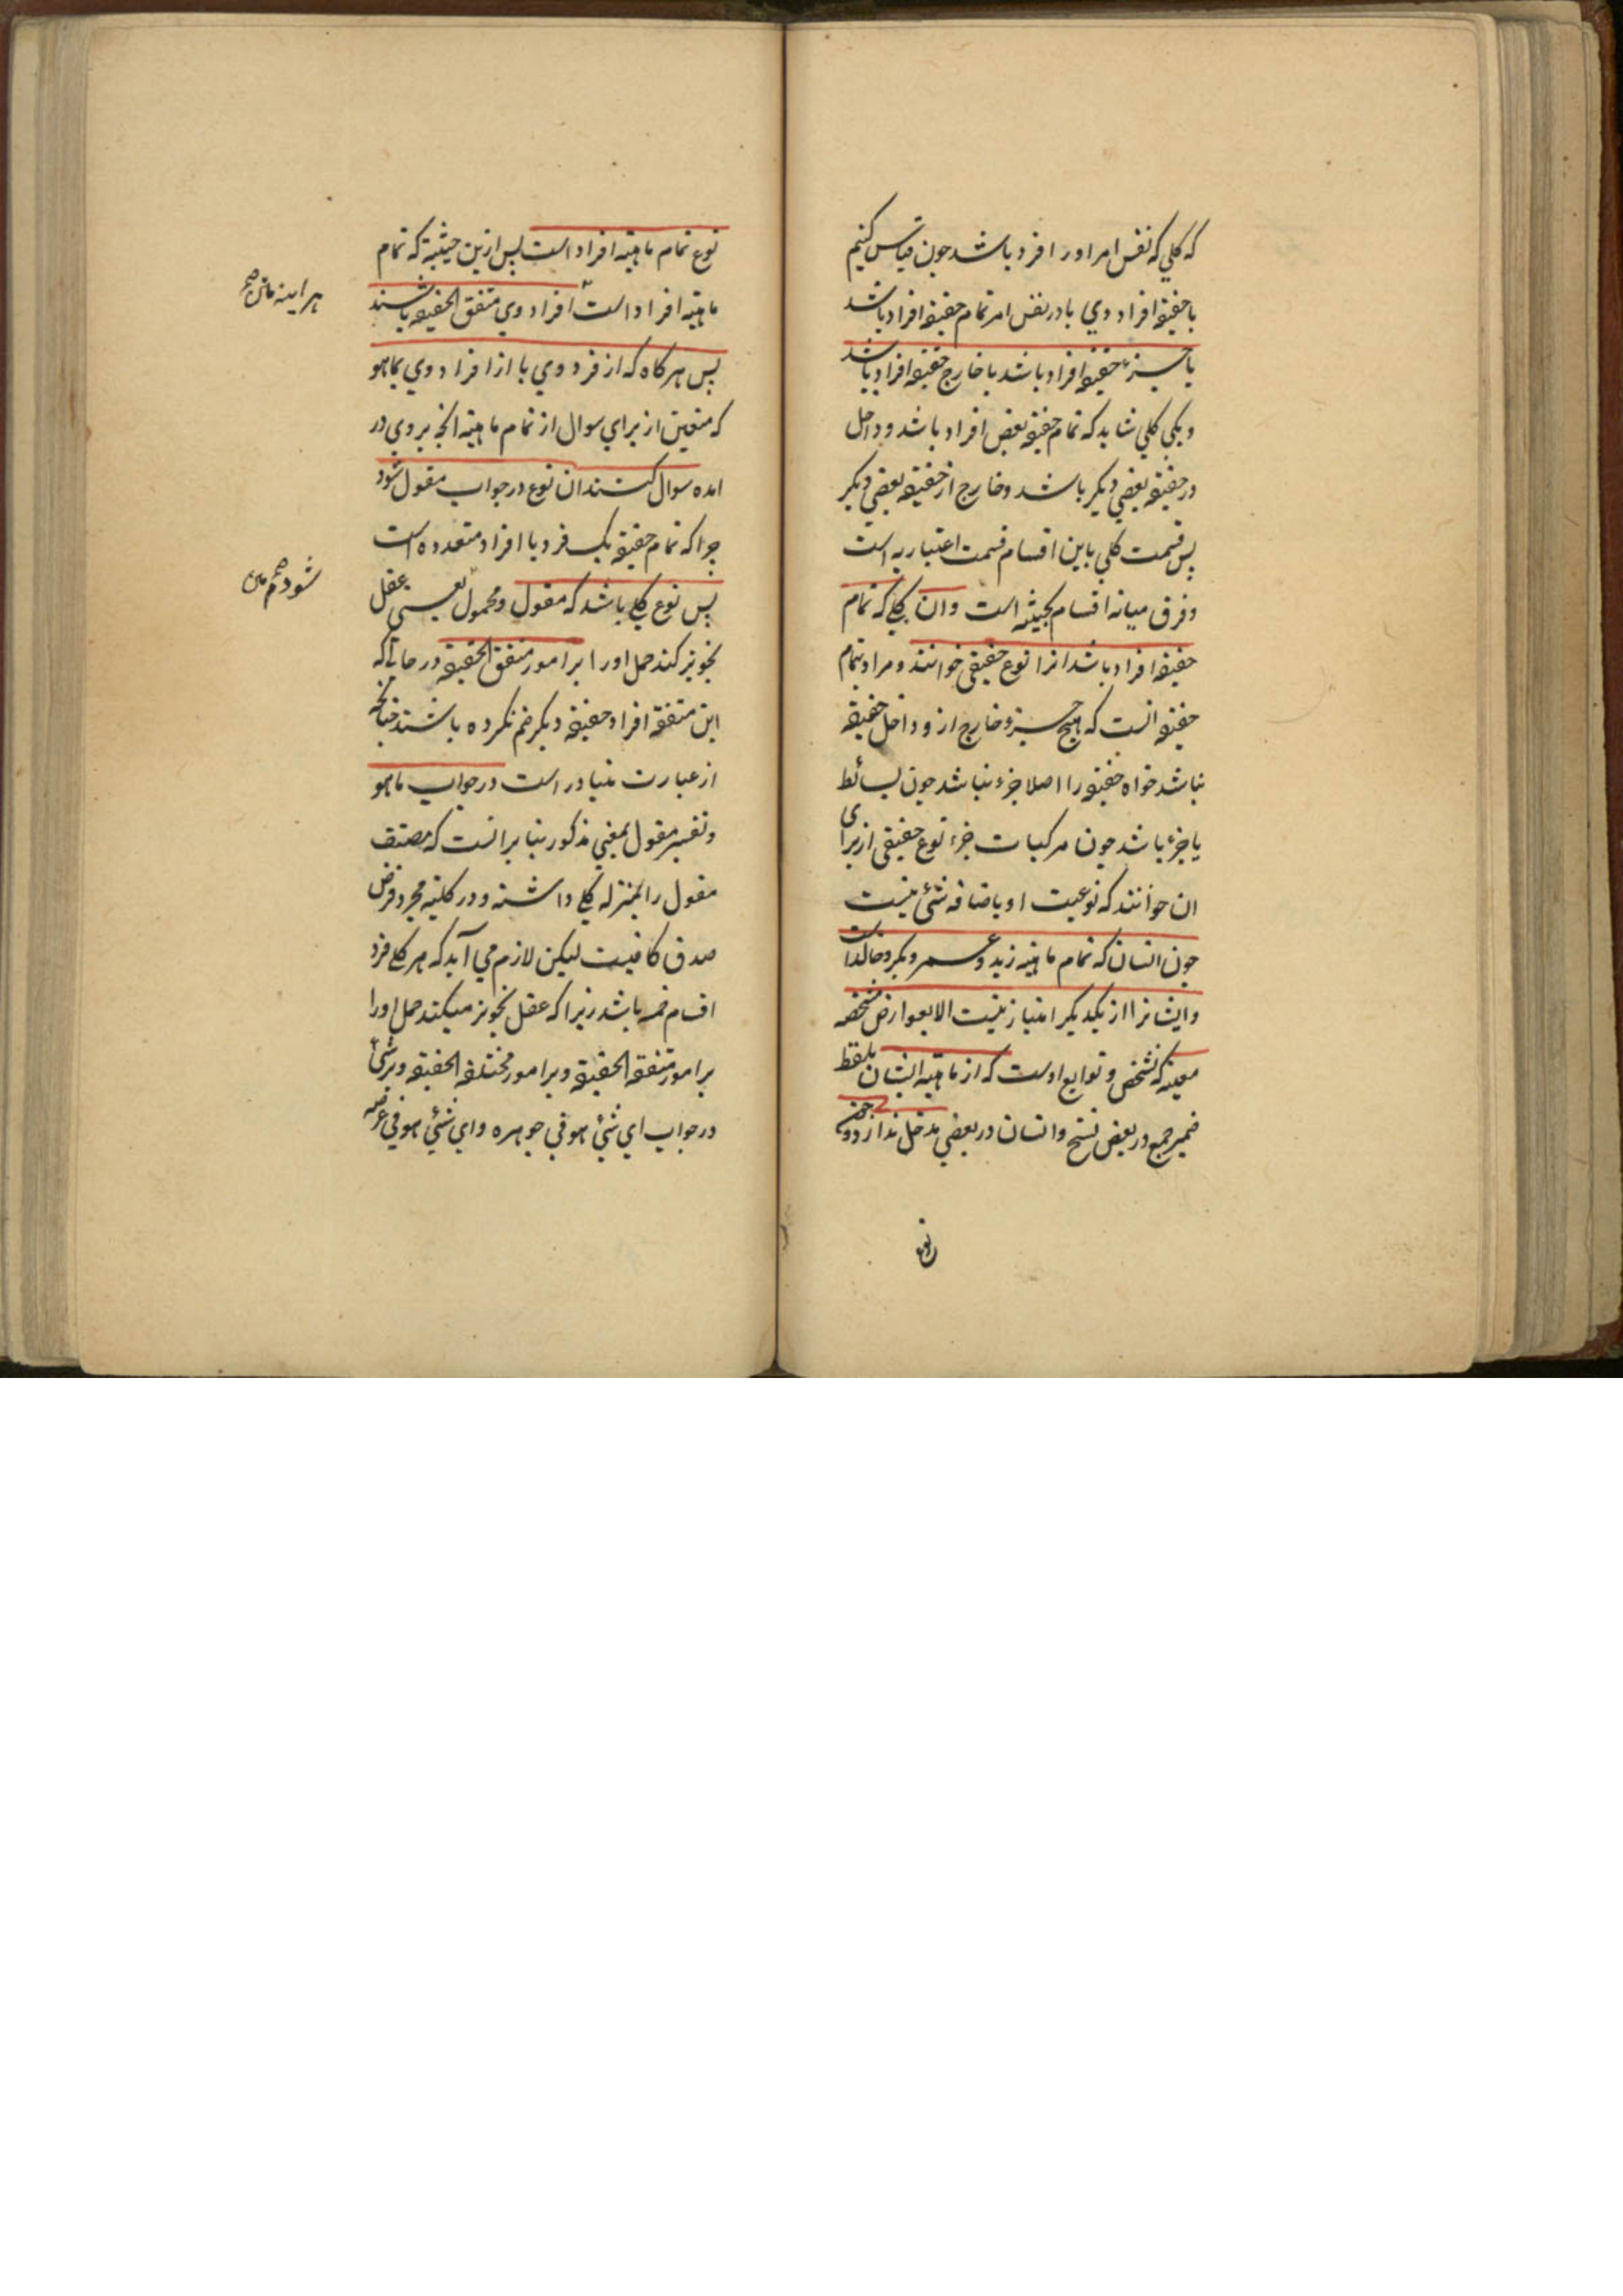 که کلي که نفس امر اورا افرد باشد جون قیاس کنیم
با حقیقة افراد وي یا در نفس امر تمام حقیقة افراد باشد
یا جزء حقیقة افراد باشد یا خارج حقیقة افراد باشد
ویکي کلي شاید که تمام حقیقة بعض افراد باشد وداخل
در حقیقة بعضي دیکر باشد وخارج از حقیقة بعضي دیکر
پس قسمت کلي باین اقسام قسمت اعتباریه است
وفرق میانه اقسام بحیثیه است وان کلے که تمام
حقیقة افراد باشد انرا نوع حقیقي خوانند ومراد بتمام
حقیقة انست که هیچ جیز خارج از و داخل حقیقة
نباشد خواه حقیقة را اصلا جزء نباشد جون بسائط
یا جزء باشد جون مرکبات جزء نوع حقیقي از برای
ان خوانند که نوعیت او باضافه شئ نیست
جون انسان که تمام ماهیة زید وعمر وبکر وخالد است
وایشانرا از یکدیکر امتیاز نیست الا بعوارض مشخصه
معینه که تشخص وتوابع اوست که از ماهیة ایشان بلفظ
ضمیر جمع در بعض نسخ وانسان در بعضي مدخل ندارد وجون
نوع
نوع تمام ماهیة افراد است پس ازین حیثیة که تمام
ماهیة افراد است افراد وي متفق الحقیقة باشند
پس هرکاه که از فرد وي یا از افراد وي بماهو
که متعین از براي سوال از تمام ماهیة انجه بر وي در
امده سوال کنند ان نوع در جواب مقول شود
جرا که تمام حقیقة یک فرد یا افراد متعدده است
پس نوع کلے باشد که مقول ومحمول یعنی عقل
تجویز کند حمل اورا بر امور متفق الحقیقة در حالتی که
این متفقة افراد حقیقة دیکر ضم نکرده باشند جنانجه
از عبارت متبادر است در جواب ماهو
وتفسیر مقول بمعني مذکور بنا بر انست که مصنف
مقول را بمنزله کلے داشته ودر کلیة مجرد فرض
صدق کافیست لیکن لازم مي آید که هر کلے فرد
اقسام خمسه باشد زیرا که عقل تجویز میکند حمل اورا
بر امور متفقة الحقیقة وبر امور مختلفة الحقیقة وبر شئ
در جواب اي شئ هو في جوهره واي شئ هو في عرضه
هراینه متن صح
شود هم متن